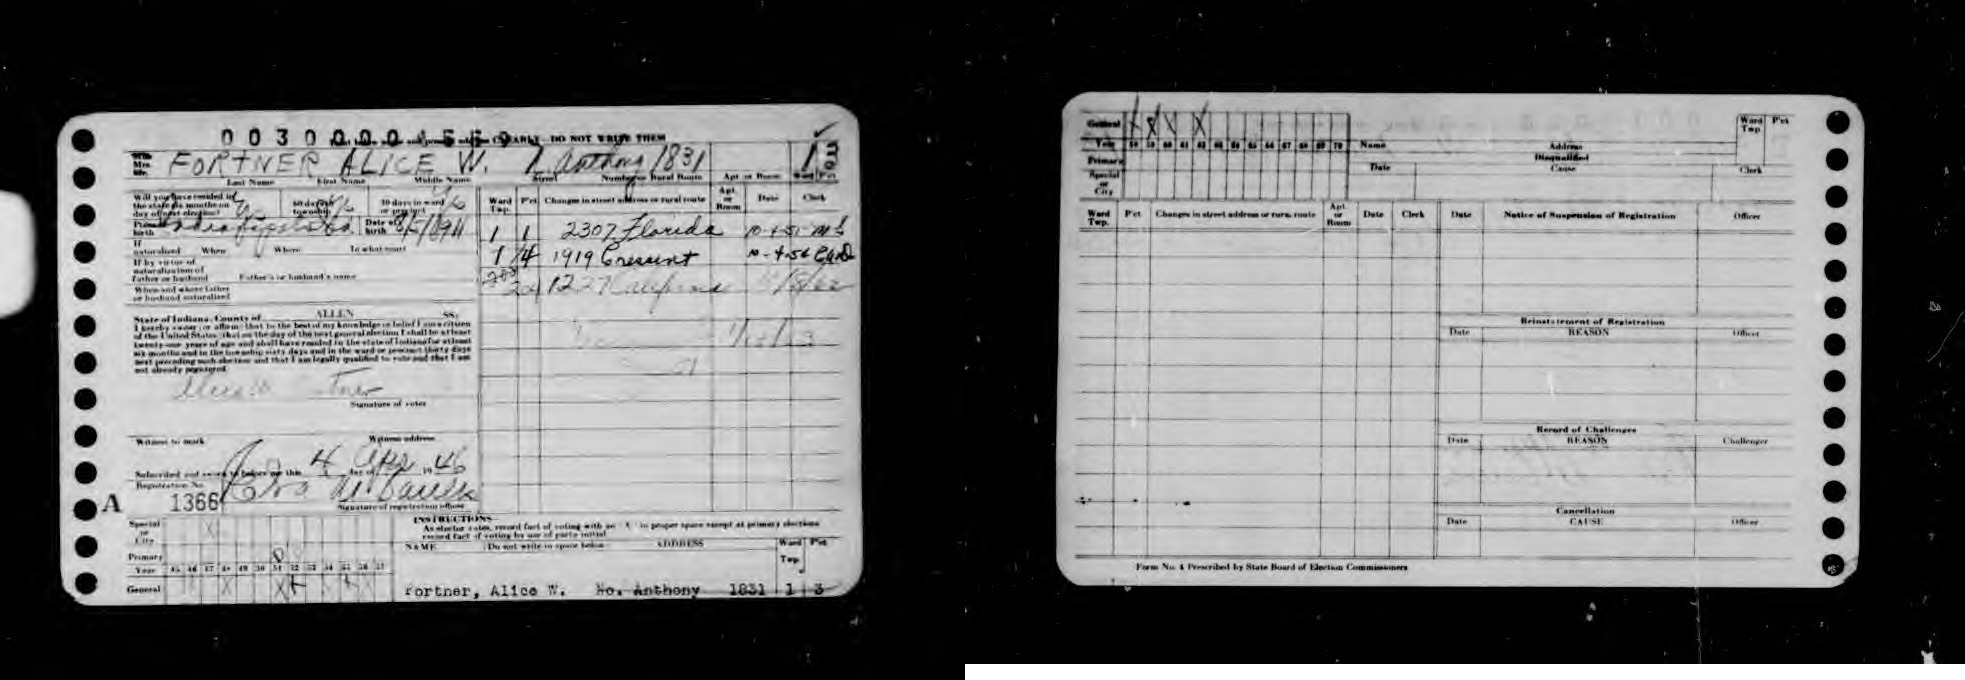 CLEARLY DO NOT WRITE THEM
Mrs. FORTNER ALICE W. N. Anthony 1831 1
Last Name First Name Middle Name Street Number or Rural Route Apt or Room Ward Pct
Will you have resided in the state six months on day of next election? 60 days in township 30 days in ward or precinct
Date of birth
If naturalized When Where In what court
If by virtue of naturalization of father or husband Father's or husband's name
When and where father or husband naturalized
Ward Twp. P'ct Changes in street address or rural route Apt. or Room Date Clerk
1 1 2307 Florida 10-4-51
1 4 1919 Crescent 10-4-54
State of Indiana, County of ALLEN SS:
I hereby swear, or affirm, that to the best of my knowledge or belief I am a citizen
of the United States, that on the day of the next general election I shall be at least
twenty-one years of age and shall have resided in the state of Indiana for at least
six months and in the township sixty days and in the ward or precinct thirty days
next preceding such election and that I am legally qualified to vote and that I am
not already registered
Signature of voter
Witness to mark Witness address
Subscribed and sworn to before me this 4 day of Apr 1946
Registration No.
A 1366
Signature of registration officer
INSTRUCTIONS
As elector votes, record fact of voting with an "X" in proper space except at primary elections
record fact of voting by use of party initial
Special or City
Primary
Year 45 46 47 48 49 50 51 52 53 54 55 56 57
General
NAME Do not write in space below ADDRESS Ward Twp. P'ct
Fortner, Alice W. No. Anthony 1831 1 3
General
Year 58 59 60 61 62 63 64 65 66 67 68 69 70
Primary
Special or City
Name Address Ward Twp P'ct
Disqualified
Date Cause Clerk
Ward Twp. P'ct Changes in street address or rural route Apt. or Room Date Clerk
Date Notice of Suspension of Registration Officer
Reinstatement of Registration
Date REASON Officer
Record of Challenges
Date REASON Challenger
Cancellation
Date CAUSE Officer
Form No. 4 Prescribed by State Board of Election Commissioners